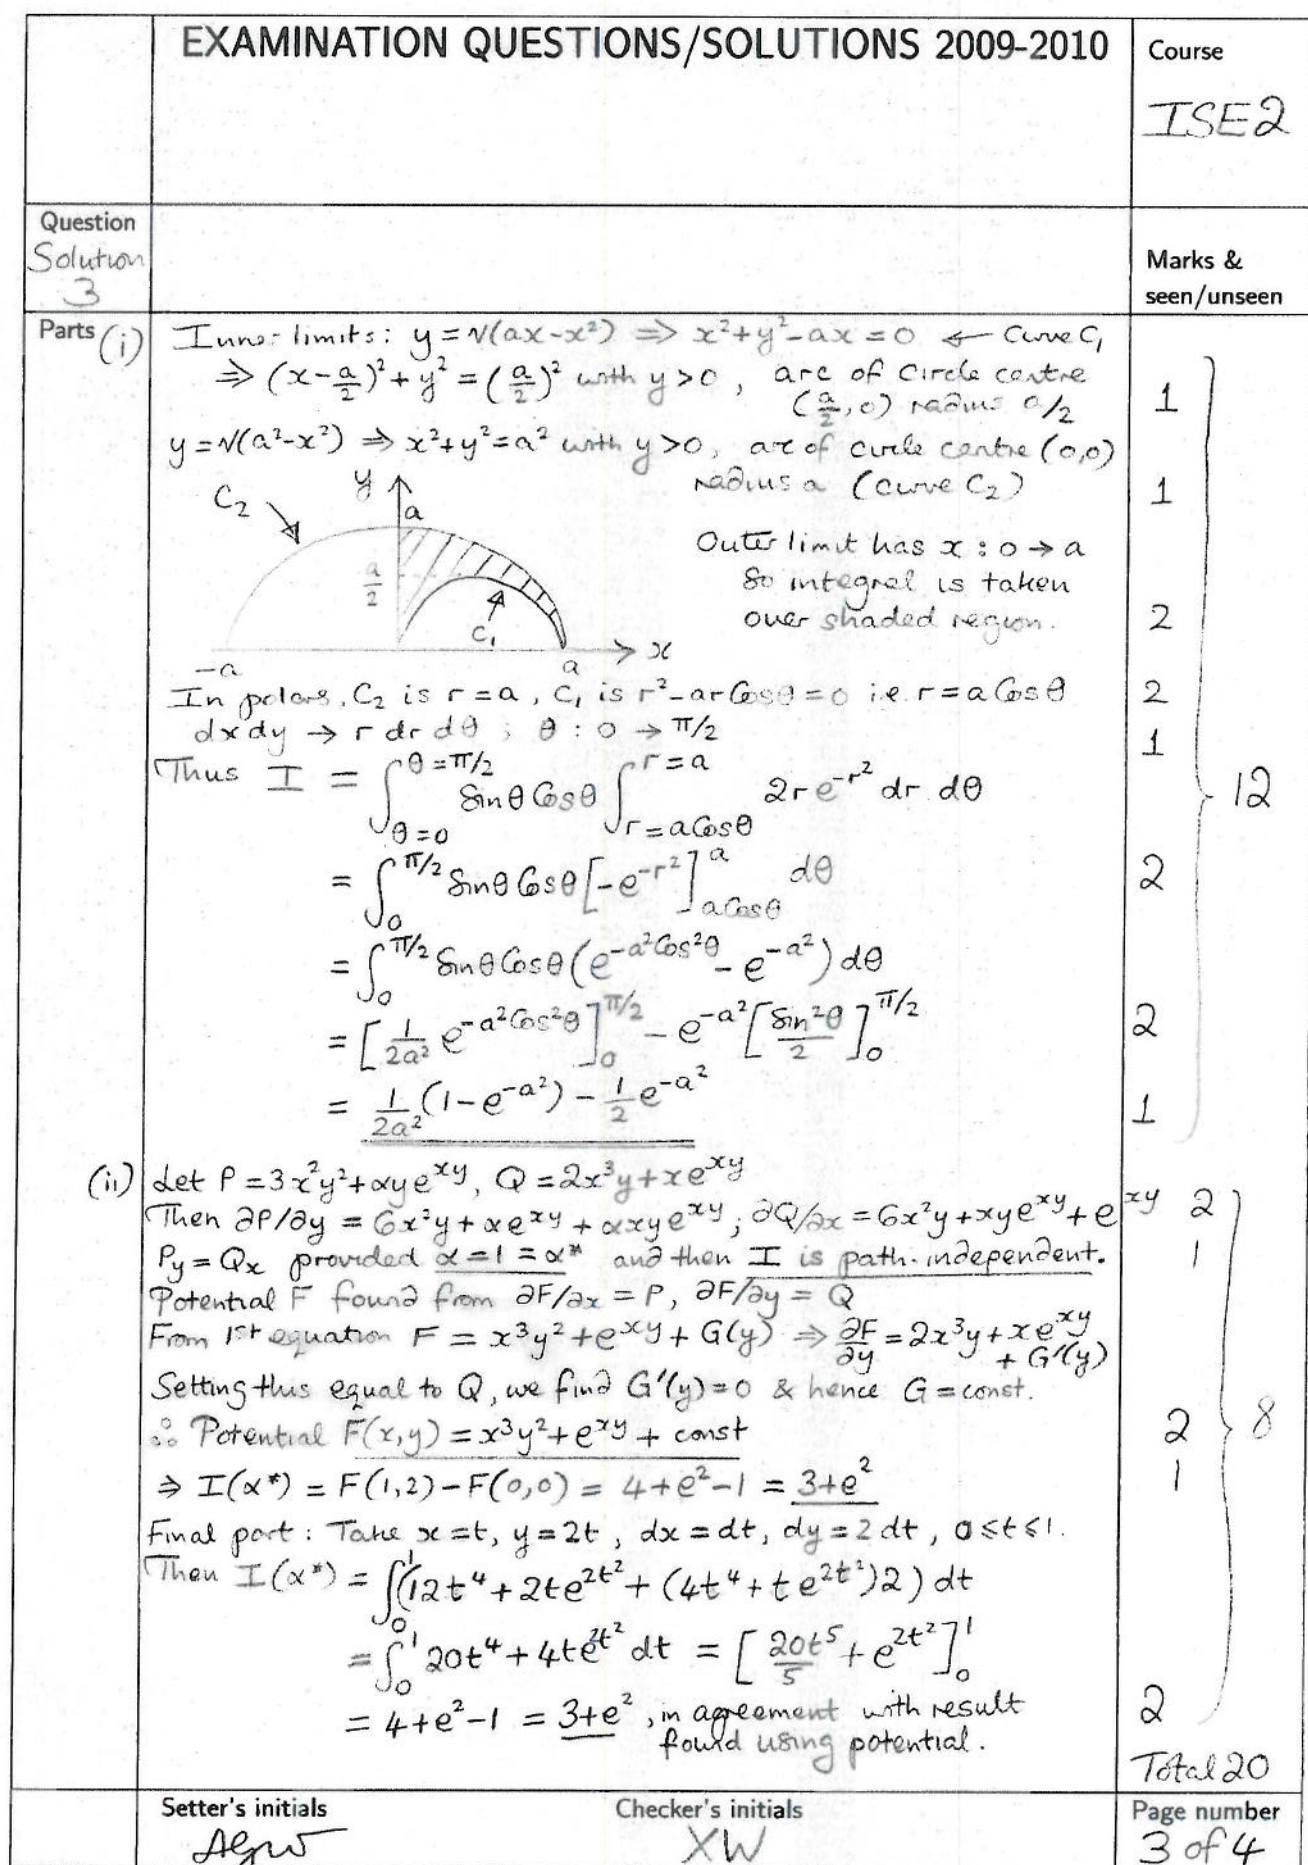 EXAMINATION QUESTIONS/SOLUTIONS 2009-2010
Course
ISE2
Question
Solution
3
Marks &
seen/unseen
Parts (i)
Inner limits: y = √(ax-x²) ⇒ x²+y²-ax = 0 ← Curve C₁
⇒ (x-a/2)² + y² = (a/2)² with y>0, arc of circle centre
(a/2, 0) radius a/2
1
y = √(a²-x²) ⇒ x²+y² = a² with y>0, arc of circle centre (0,0)
radius a (curve C₂)
1
C₂
y
a
a/2
C₁
-a
a
x
Outer limit has x : 0 → a
So integral is taken
over shaded region.
2
In polars, C₂ is r = a, C₁ is r²-ar Cosθ = 0 i.e. r = a Cosθ
2
dx dy → r dr dθ ; θ : 0 → π/2
1
Thus I = ∫_{θ=0}^{θ=π/2} Sinθ Cosθ ∫_{r=aCosθ}^{r=a} 2r e^{-r²} dr dθ
12
= ∫_0^{π/2} Sinθ Cosθ [-e^{-r²}]_{aCosθ}^{a} dθ
2
= ∫_0^{π/2} Sinθ Cosθ (e^{-a²Cos²θ} - e^{-a²}) dθ
= [1/2a² e^{-a²Cos²θ}]_0^{π/2} - e^{-a²} [Sin²θ/2]_0^{π/2}
2
= 1/2a² (1-e^{-a²}) - 1/2 e^{-a²}
1
(ii) Let P = 3x²y² + αye^{xy}, Q = 2x³y + xe^{xy}
Then ∂P/∂y = 6x²y + αe^{xy} + αxye^{xy}; ∂Q/∂x = 6x²y + xye^{xy} + e^{xy}
2
P_y = Q_x provided α = 1 = α* and then I is path-independent.
1
Potential F found from ∂F/∂x = P, ∂F/∂y = Q
From 1st equation F = x³y² + e^{xy} + G(y) ⇒ ∂F/∂y = 2x³y + xe^{xy}
+ G'(y)
Setting this equal to Q, we find G'(y) = 0 & hence G = const.
∴ Potential F(x,y) = x³y² + e^{xy} + const
2
8
⇒ I(α*) = F(1,2) - F(0,0) = 4 + e² - 1 = 3 + e²
1
Final part: Take x = t, y = 2t, dx = dt, dy = 2 dt, 0 ≤ t ≤ 1.
Then I(α*) = ∫_0^1 (12t⁴ + 2te^{2t²} + (4t⁴ + te^{2t²})2) dt
= ∫_0^1 20t⁴ + 4te^{2t²} dt = [20t⁵/5 + e^{2t²}]_0^1
= 4 + e² - 1 = 3 + e², in agreement with result
found using potential.
2
Total 20
Setter's initials
AGW
Checker's initials
XW
Page number
3 of 4